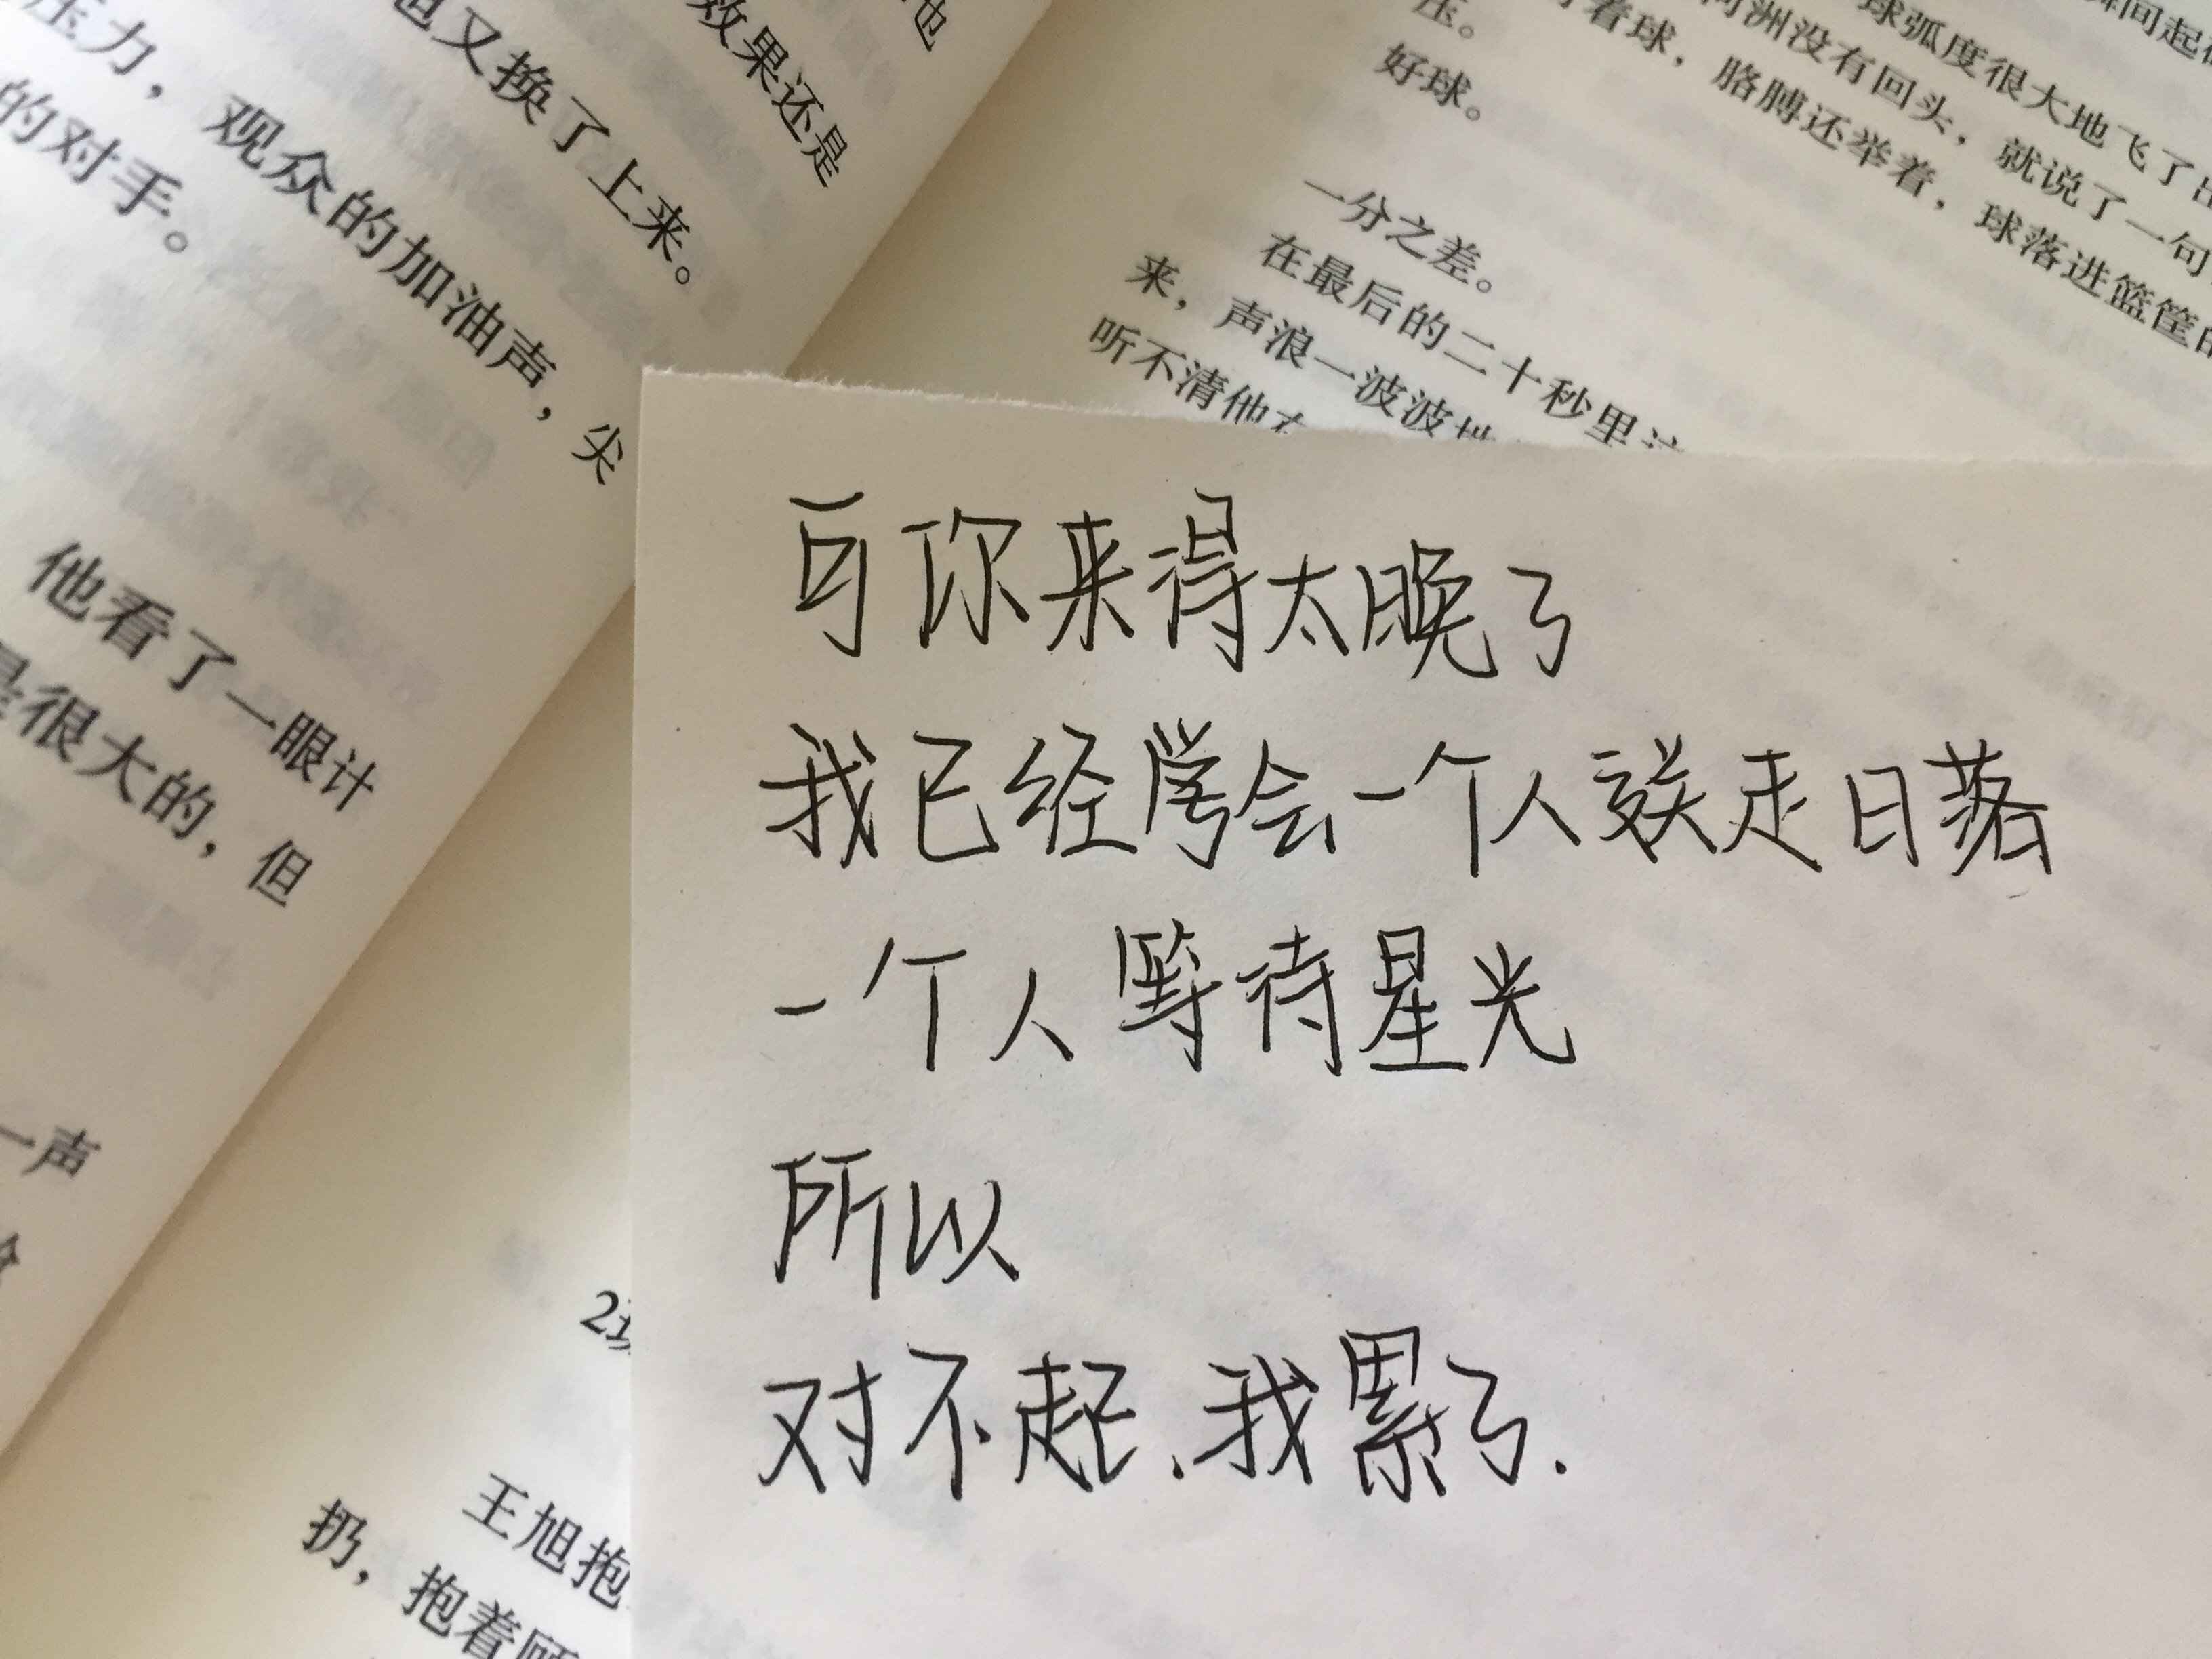 也
效果还是
旦又换了上来。
压力，观众的加油声，尖
的对手。
他看了一眼计
是很大的，但
一声
瞬间起
球弧度很大地飞了出
洲没有回头，就说了一句
着球，胳膊还举着，球落进篮筐
压。
好球。
一分之差。
在最后的二十秒里
来，声浪一波波
听不清他
可你来得太晚了
我已经学会一个人送走日落
一个人等待星光
所以
对不起、我累了.
2
王旭抱
扔，抱着